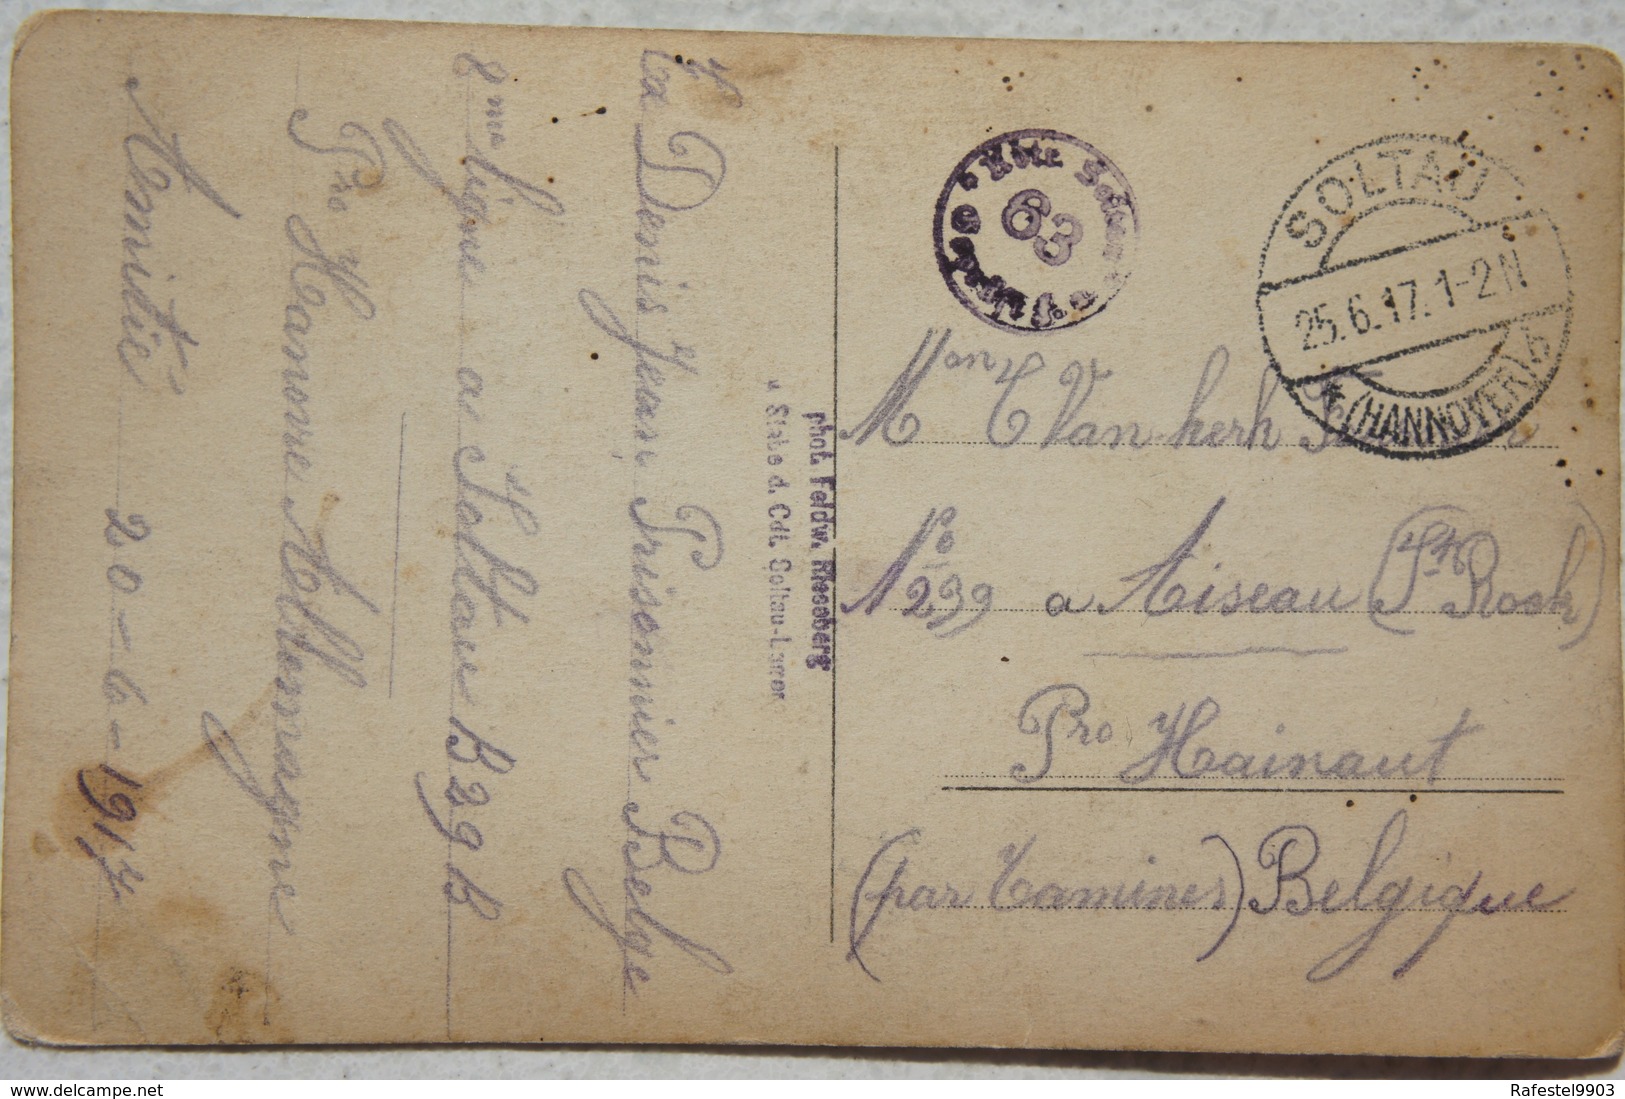 Ex Denis Jean Prisonnier Belge
2me ligne a Soltau B 29 B
Pro Hanovre Allemagne
Amitié 20-6-1917
phot. Feldw. Riesoberg
Stabe d. Cdt. Soltau-Lager
63
SOLTAU
25.6.17.1-2N
* (HANNOVER) b
Mon C Van-kerk
No 239 a Aiseau (St Roch)
Pro Hainaut
(par Tamines) Belgique
delcampe.net
Rafestel9903